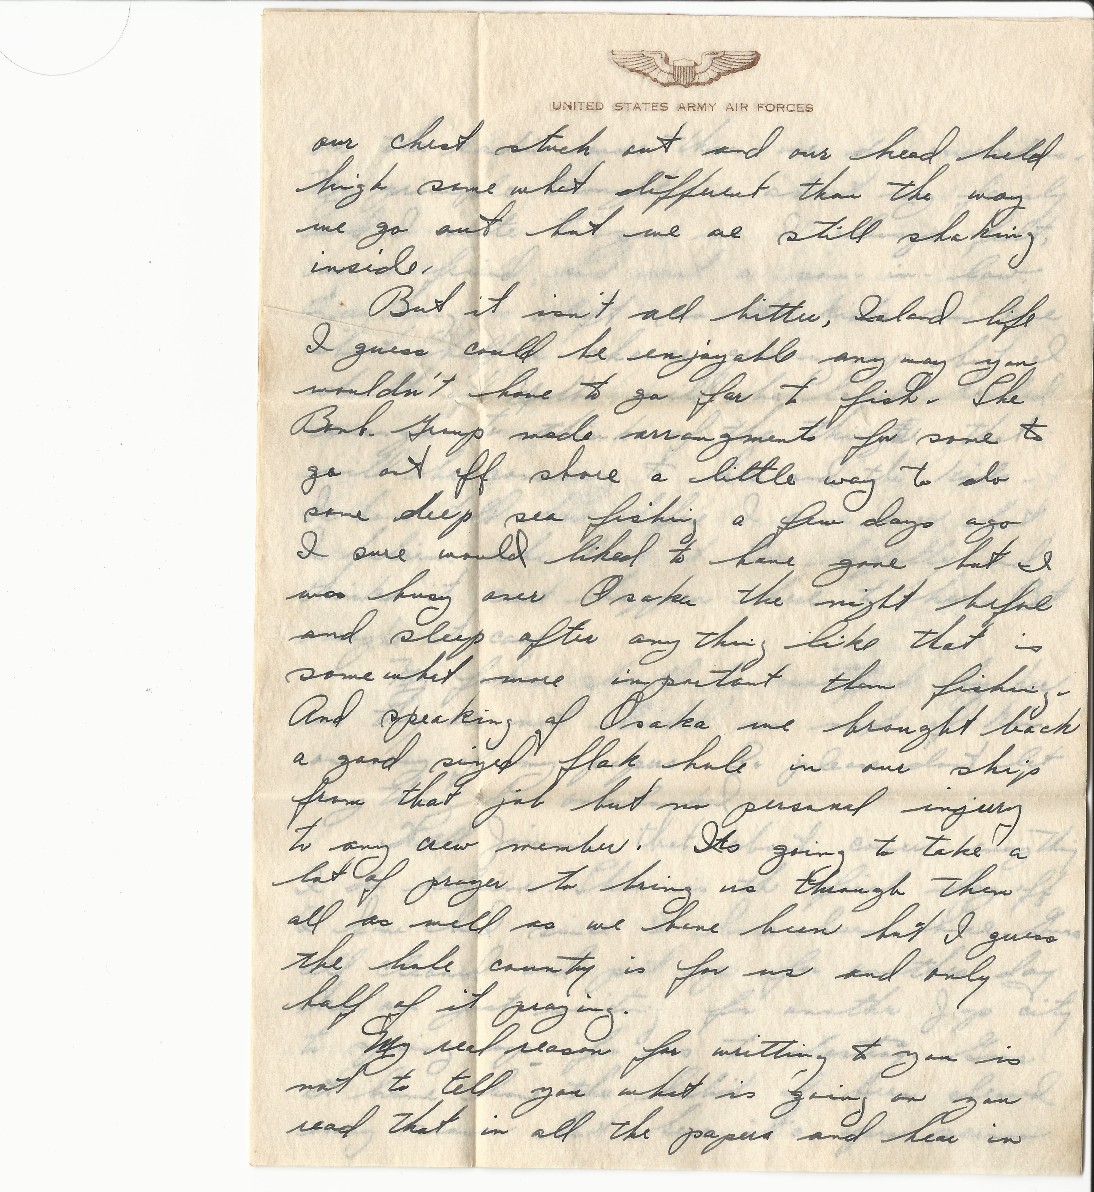 UNITED STATES ARMY AIR FORCES
our chest stuck out and our head held
high some what different than the way
we go out but we ae still shaking
inside.
But it isn't all bitter, Island life
I guess could be enjoyable any way you
wouldn't have to go far to fish. The
Bomb. Group made arrangments for some to
go out off shore a little way to do
some deep sea fishing a few days ago
I sure would liked to have gone but I
was busy over Osaka the night before
and sleep after any thing like that is
some what more important than fishing.
And speaking of Osaka we brought back
a good sized flak hole in our ship
from that job but no personal injury
to any crew member. Its going to take a
lot of prayer to bring us through them
all as well as we have been but I guess
the hole county is for us and only
half of it praying.
My real reason for writting to you is
not to tell you what is going on you
read that in all the papers and hear in